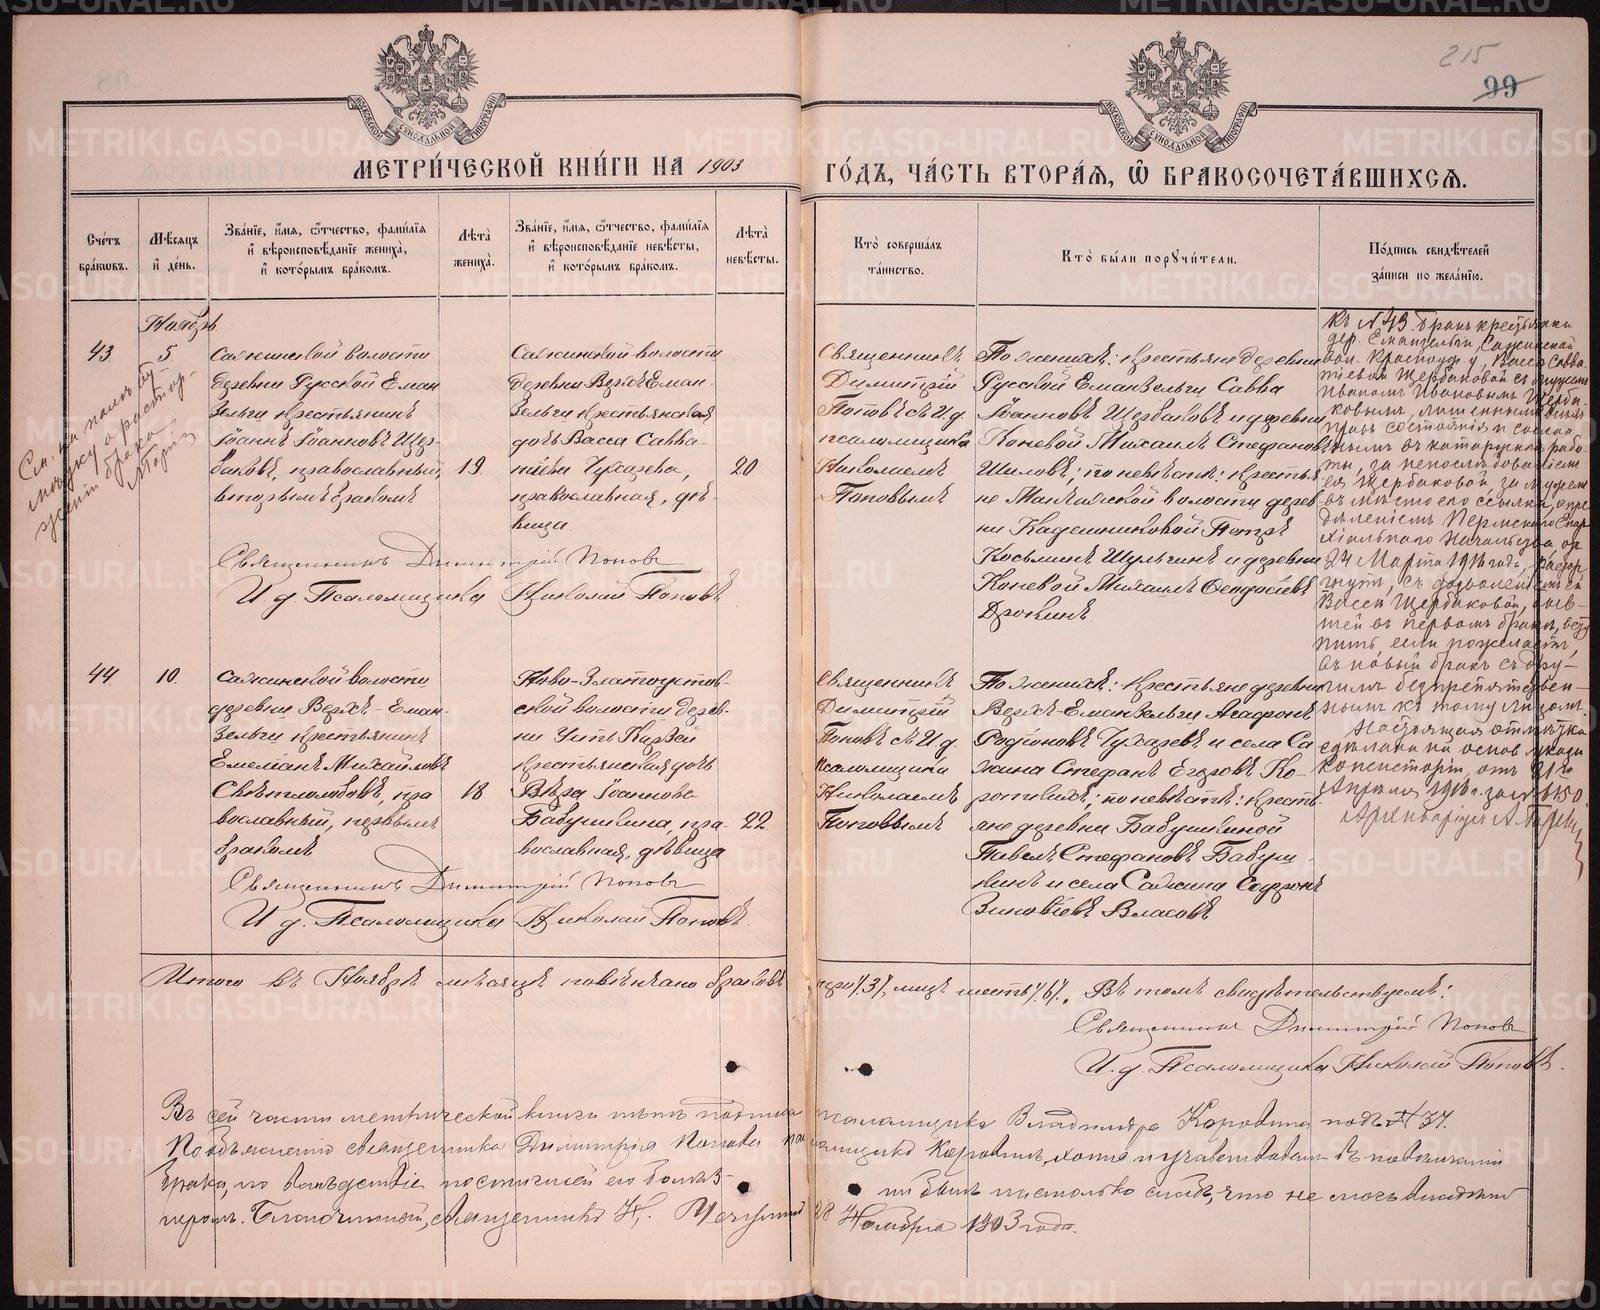 215
99
МЕТРИЧЕСКОЙ КНИГИ НА 1903 ГОДЪ, ЧАСТЬ ВТОРАЯ, Ѿ БРАКОСОЧЕТАВШИХСЯ.
Счетъ браковъ.
Мѣсяцъ и день.
Званіе, имя, ѿтчество, фамилія
и вѣроисповѣданіе жениха,
и которымъ бракомъ.
Лѣта жениха.
Званіе, имя, ѿтчество, фамилія
и вѣроисповѣданіе невѣсты,
и которымъ бракомъ.
Лѣта невѣсты.
Кто совершалъ
таинство.
Кто были поручители.
Подпись свидѣтелей
записи по желанію.
Ноябрь
43
5
Сажинской волости
деревни Русской Еман
зельги крестьянинъ
Іоаннъ Іоанновъ Щер-
баковъ, православный,
вторымъ бракомъ
19
Сажинской волости
деревни Верхъ Еман-
зельги крестьянская
дочь Васса Савва-
тиева Чухарева,
православная, дѣ-
вица
20
Священникъ
Димитрій
Поповъ съ И. д.
псаломщика
Николаемъ
Поповымъ
По женихѣ: крестьяне деревни
Русской Еманзельги Савва
Іоанновъ Щербаковъ и деревни
Коневой Михаилъ Стефановъ
Шиловъ; по невѣстѣ: крестья
не Манчажской волости дерев
ни Кадешниковой Петръ
Косьминъ Шульгинъ и деревни
Коневой Михаилъ Ѳеодосіевъ
Дрокинъ.
Священникъ Димитрій Поповъ
И. д. Псаломщика Николай Поповъ
Къ № 43. Бракъ крестьянки
дер. Емангельги, Сажинской
вол. Красноуф. у. Вассы Савва
тіевой Щербаковой съ мужемъ
Иваномъ Ивановымъ Щерба-
ковымъ, лишеннымъ всѣхъ
правъ состоянія и сослан
нымъ въ каторжныя рабо
ты, за непослѣдованіемъ
ея Щербаковой за мужемъ
въ мѣсто его ссылки, опре
дѣленіемъ Пермскаго Епар
хіальнаго Начальства от
24 Марта 1916 года, растор
гнутъ, съ дозволеніемъ ей
Вассѣ Щербаковой, быв-
шей въ первомъ бракѣ, всту
пить, если пожелаетъ,
въ новый бракъ съ дру-
гимъ безпрепятствен-
нымъ къ тому лицомъ.
Настоящая отмѣтка
сдѣлана на основ. указа
консисторіи, отъ 21 го
Апрѣля 1916 г. за № 6150.
44
10.
Сажинской волости
деревни Верхъ-Еман-
зельги крестьянинъ
Емеліанъ Михайловъ
Свѣтлолобовъ, пра
вославный, первымъ
бракомъ
18
Ново-Златоустов-
ской волости дерев-
ни Усть Каржей
крестьянская дочь
Вѣра Іоаннова
Бабушкина, пра-
вославная, дѣвица
22
Священникъ
Димитрій
Поповъ съ И. д.
Псаломщика
Николаемъ
Поповымъ
По женихѣ: крестьяне деревни
Верхъ-Еманзельги Агафонъ
Родіоновъ Чухаревъ и села Са
жина Стефанъ Егоровъ Ко-
роткихъ; по невѣстѣ: кресть-
яне деревни Бабушкиной
Павелъ Стефановъ Бабуш-
кинъ и села Сажина Софронъ
Зиновіевъ Власовъ
Священникъ Димитрій Поповъ
И. д. Псаломщика Николай Поповъ.
Итого въ Ноябрѣ мѣсяцѣ повѣнчано браковъ три /3/, лицъ шесть /6/. Въ томъ свидѣтельствуемъ:
Священникъ Димитрій Поповъ
И. д. Псаломщика Николай Поповъ.
Въ сей части метрической книги нѣтъ подписи псаломщика Владимира Коровина подъ № 37.
По объясненію священника Димитрія Попова псаломщикъ Коровинъ, хотя и участвовалъ въ повѣнчаніи
брака, но вслѣдствіе постигшей его болѣз- ни былъ настолько слабъ, что не могъ
Благочинный, священникъ Н. 28 Ноября 1903 года.